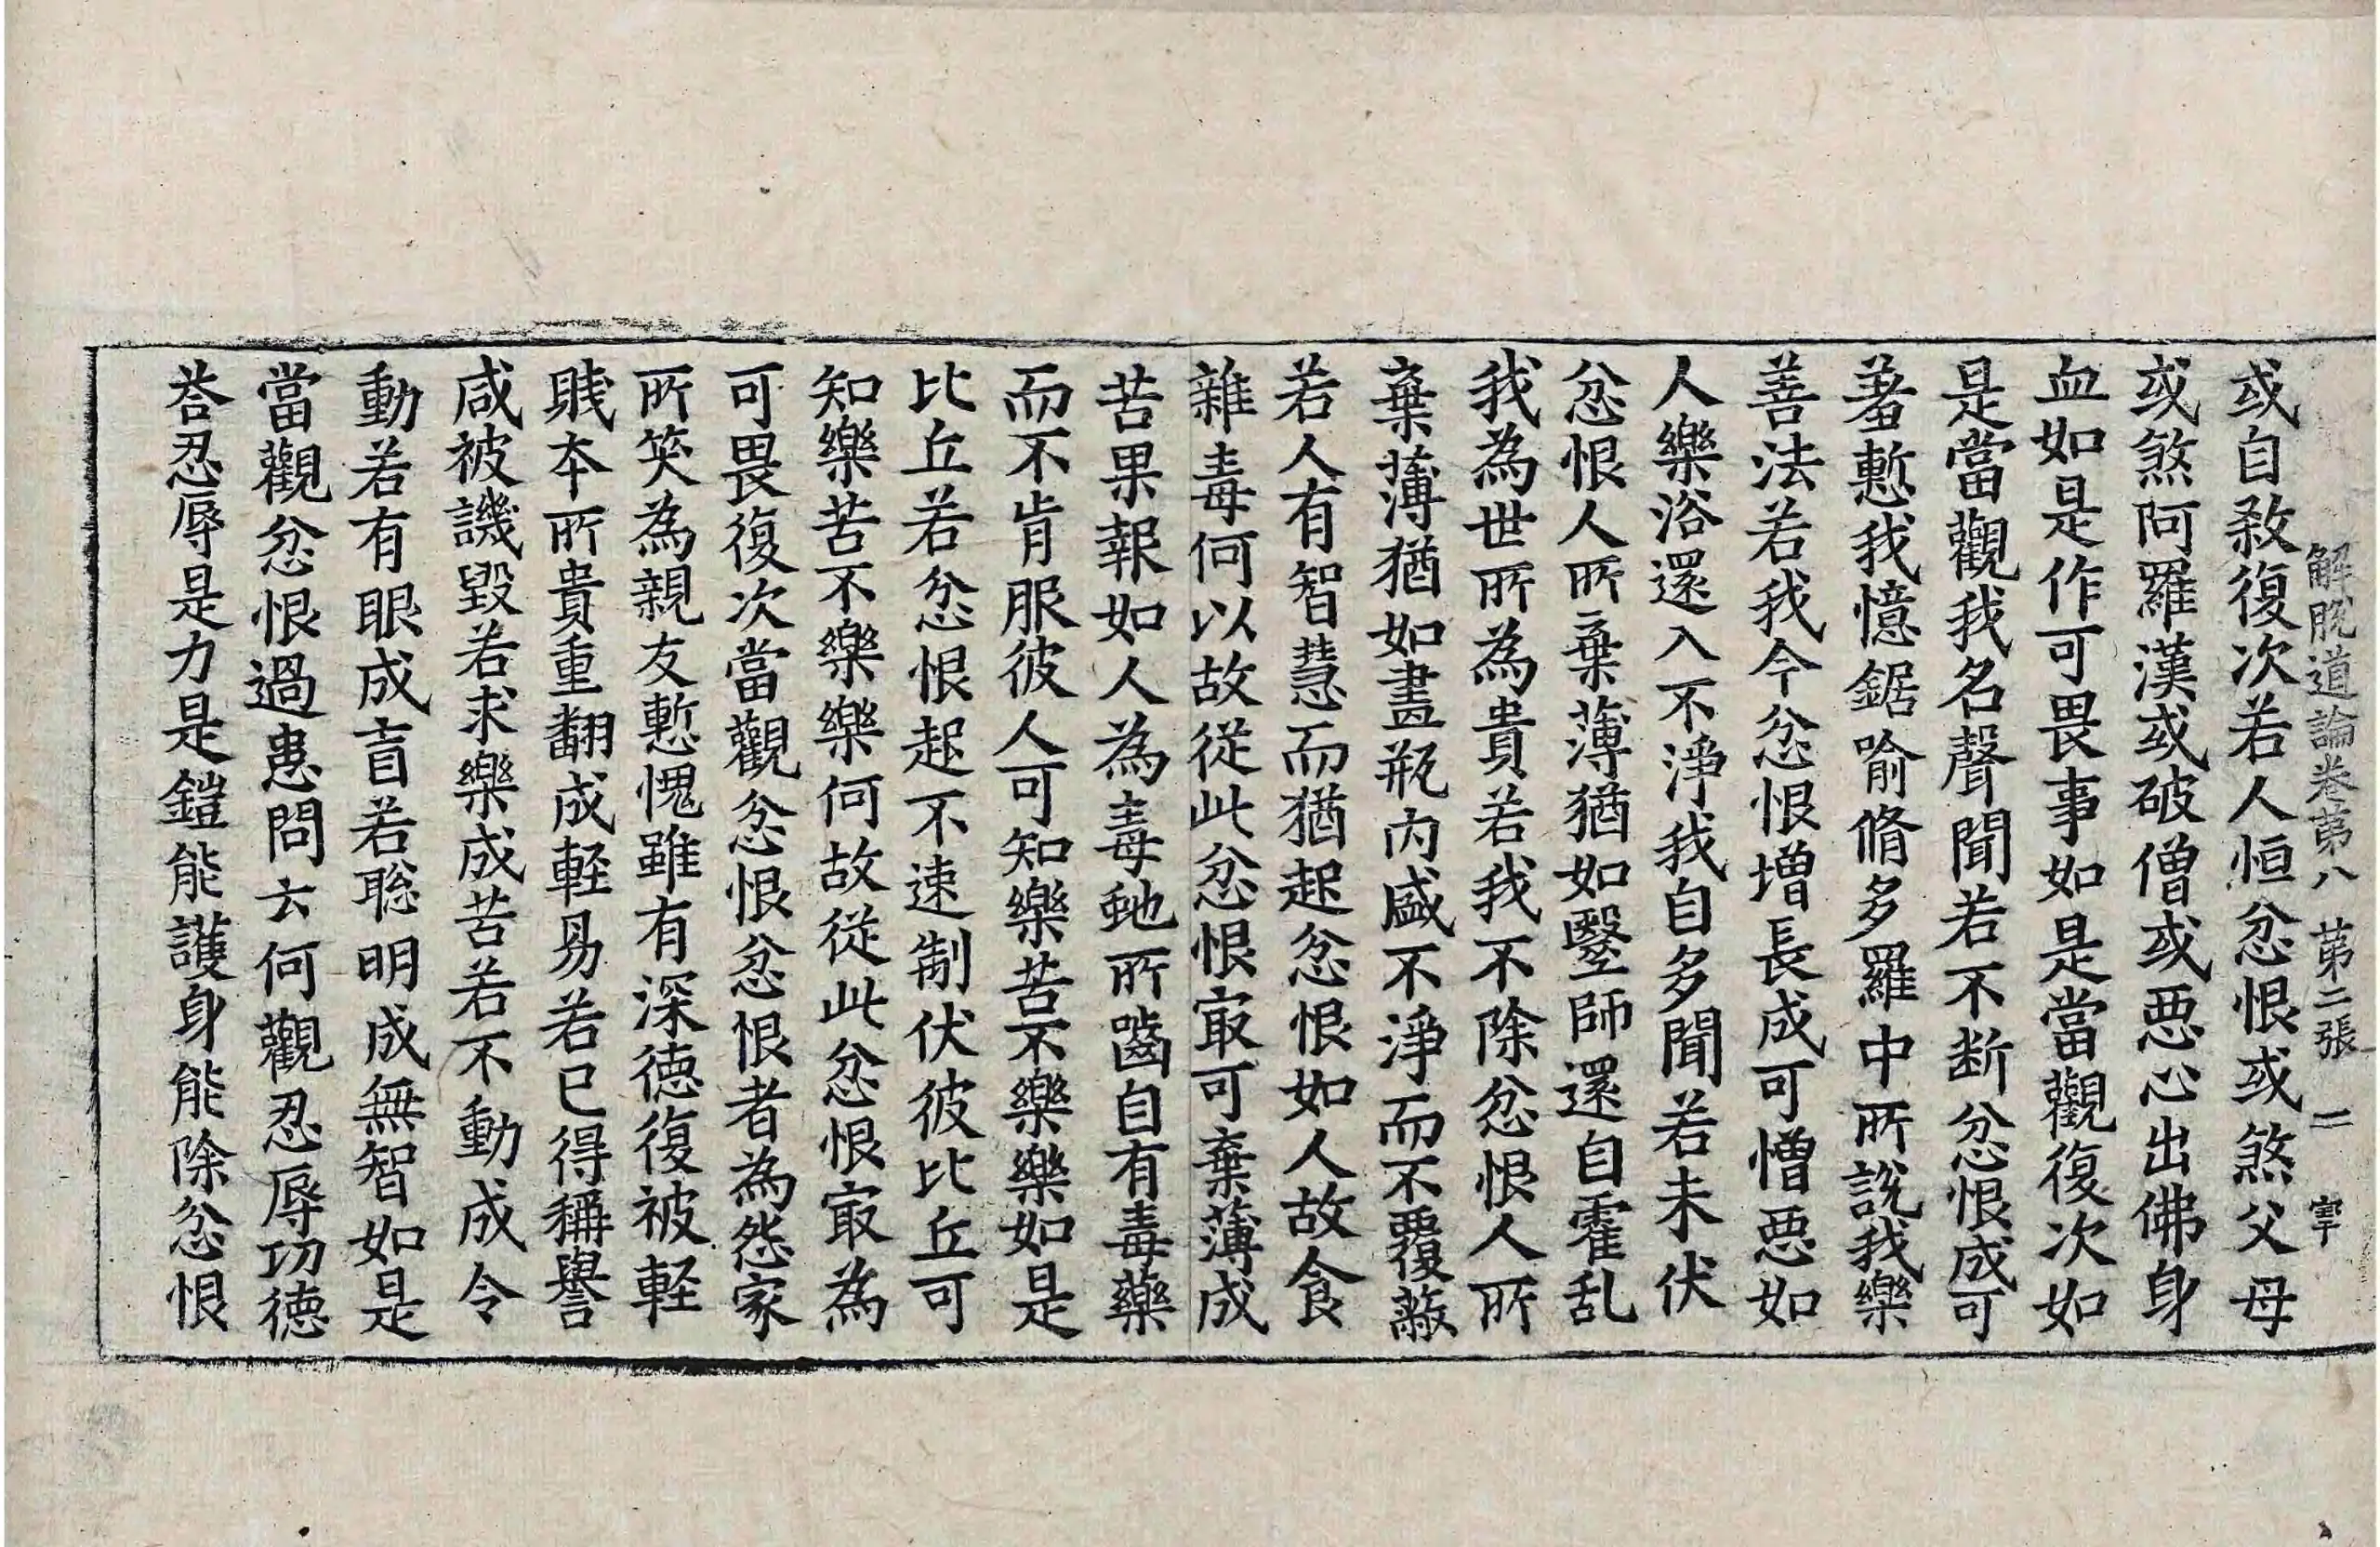 解脫道論卷第八　第二張　二　宰
或自𣣈復次若人恒忿恨或煞父母
或煞阿羅漢或破僧或惡心出佛身
血如是作可畏事如是當觀復次如
是當觀我名聲聞若不断忿恨成可
羞慙我憶鋸喻脩多羅中所說我樂
善法若我今忿恨增長成可憎惡如
人樂浴還入不淨我自多聞若未伏
忿恨人所棄薄猶如毉師還自霍乱
我為世所為貴若我不除忿恨人所
棄薄猶如畫瓶內盛不淨而不覆蔽
若人有智慧而猶起忿恨如人故食
雜毒何以故從此忿恨㝡可棄薄成
苦果報如人為毒虵所嚙自有毒藥
而不肯服彼人可知樂苦不樂樂如是
比丘若忿恨起不速制伏彼比丘可
知樂苦不樂樂何故從此忿恨㝡為
可畏復次當觀忿恨忿恨者為怨家
所笑為親友慙愧雖有深德復被輕
賎本所貴重翻成輕易若已得稱譽
咸被譏毀若求樂成苦若不動成令
動若有眼成盲若聡明成無智如是
當觀忿恨過患問云何觀忍辱功德
荅忍辱是力是鎧能護身能除忿恨